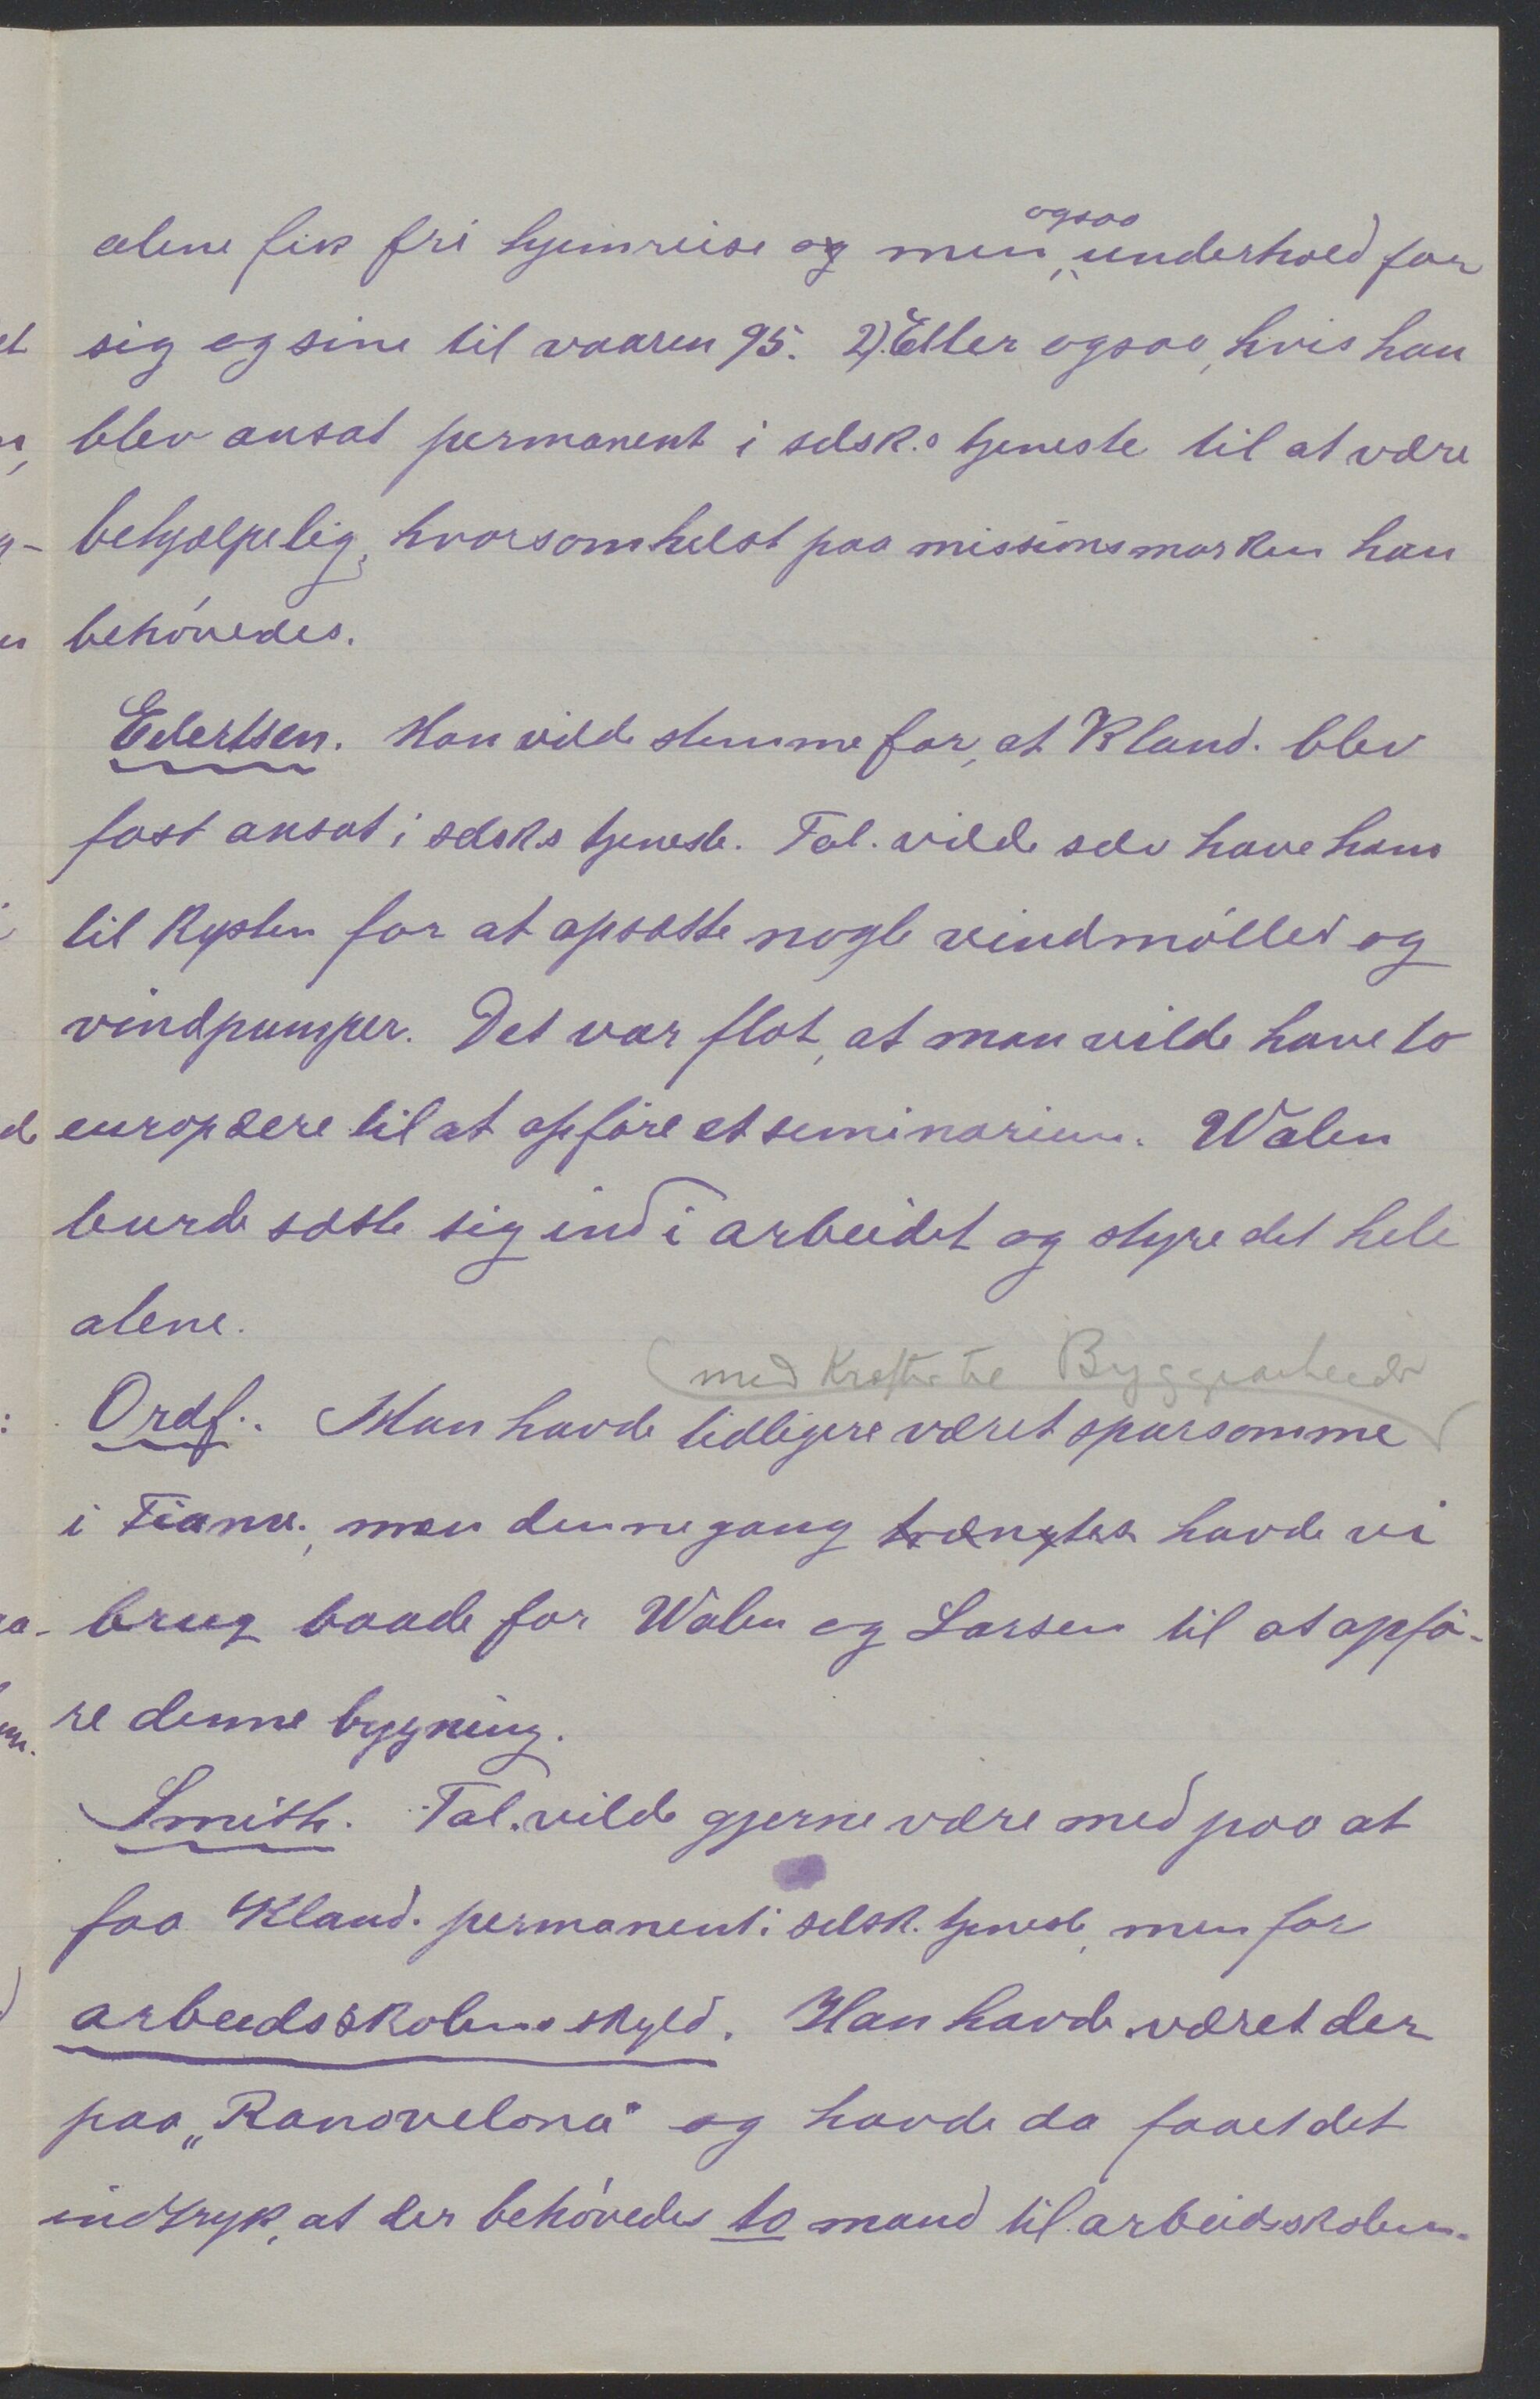 alene fik fri hjemreise og men ogsaa underhold for
sig og sine til vaaren 95. 2). Eller ogsaa, hvis han
blev ansat permanent i selsk.s tjeneste til at være
behjælpelig, hvorsomhelst paa missionsmarken han
behóvedes.
Eilertsen. Han vilde stemme for, at Kland. blev
fast ansat i selsk.s tjeneste. Tal. vilde selv have ham
til Kysten for at opsætte nogle vindmóller og
vindpumper. Det var flot, at man vilde have to
europæere til at opfóre et seminarium. Walen
burde sætte sig ind i arbeidet og styre det hele
alene.
(med Kræfter til Byggearbeider)
Ordf.. Man havde tidligere været sparsomme
i Fianar., men denne gang trængtes havde vi
brug baade for Walen og Larsen til at opfó-
re denne bygning.
Smith. Tal. vilde gjerne være med paa at
faa Kland. permanent i selsk. tjeneste, men for
arbeidsskolens skyld. Han havde været der
paa „Ranovelona" og havde da faaet det
indtryk, at der behóvedes to mand til arbeidsskolen.